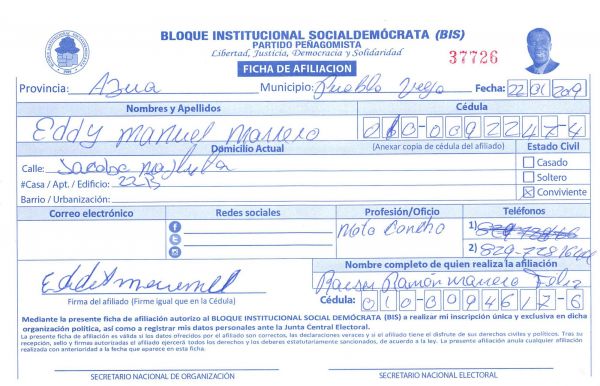 BLOQUE INSTITUCIONAL SOCIALDEMÓCRATA (BIS)
PARTIDO PEÑAGOMISTA
Libertad, Justicia, Democracia y Solidaridad
37726
FICHA DE AFILIACION
Provincia: Azua Municipio: Pueblo Viejo Fecha:
Nombres y Apellidos Cédula
Eddy Manuel Marrero 010-0092247-4
Domicilio Actual (Anexar copia de cédula del afiliado) Estado Civil
Calle: Casado
#Casa / Apt. / Edificio: Soltero
Barrio / Urbanización: Conviviente
Correo electrónico Redes sociales Profesión/Oficio Teléfonos
Moto Concho 1)
2)
Nombre completo de quien realiza la afiliación
Ramón Marrero Feliz
Firma del afiliado (Firme igual que en la Cédula) Cédula: 010-0094617-6
Mediante la presente ficha de afiliación autorizo al BLOQUE INSTITUCIONAL SOCIAL DEMÓCRATA (BIS) a realizar mi inscripción única y exclusiva en dicha
organización política, así como a registrar mis datos personales ante la Junta Central Electoral.
La presente ficha de afiliación es válida si los datos ofrecidos por el afiliado son correctos, las declaraciones veraces y si el afiliado tiene el disfrute de sus derechos civiles y políticos. Tras su
recepción, sello y firmas autorizadas el afiliado ejercerá todos los derechos y los deberes estatutariamente sancionados, de acuerdo a la ley. La presente afiliación anula cualquier afiliación
realizada con anterioridad a la fecha que aparece en esta ficha.
SECRETARIO NACIONAL DE ORGANIZACIÓN SECRETARIO NACIONAL ELECTORAL